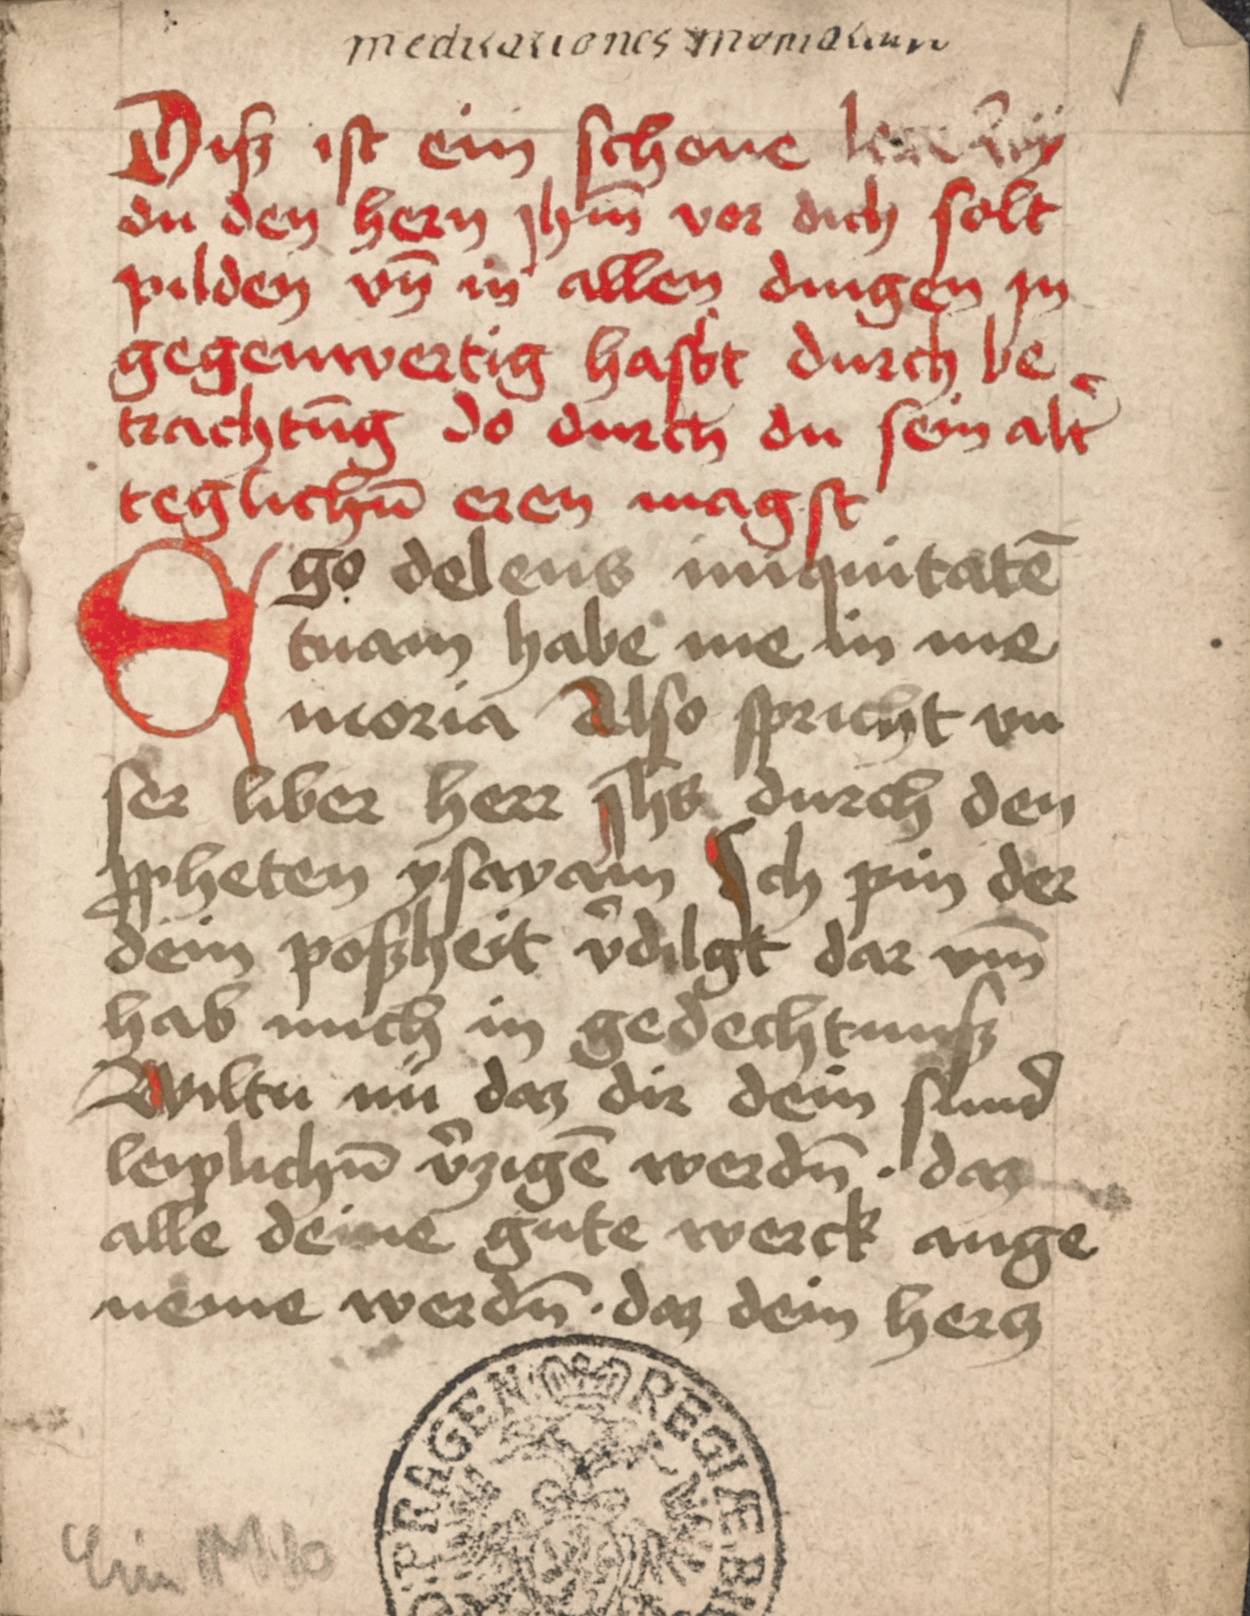 meditationes
1
Diß ist ein schone
du den hern Jhm̄ vor dich solt
pilden vn̄ in allen dingen in
gegenwertig hast durch be
trachtūg do durch du sein alt
teglichn̄ eren magst
Ego delens iniquitatē
tuam habe me in me
moria Also spricht vn
ser liber herr Jhs durch den
ꝓpheten ysayam Ich pin der
dein poßheit v̓dilgt dar vm̄
hab mich in gedechtnuß
Wiltu nu daz dir dein sund
leiplichn̄ v̓zigē werdn̄ · daz
alle deine gute werck ange
neme werdn̄ · daz dein hercz
PRAGEN REGIÆ BI